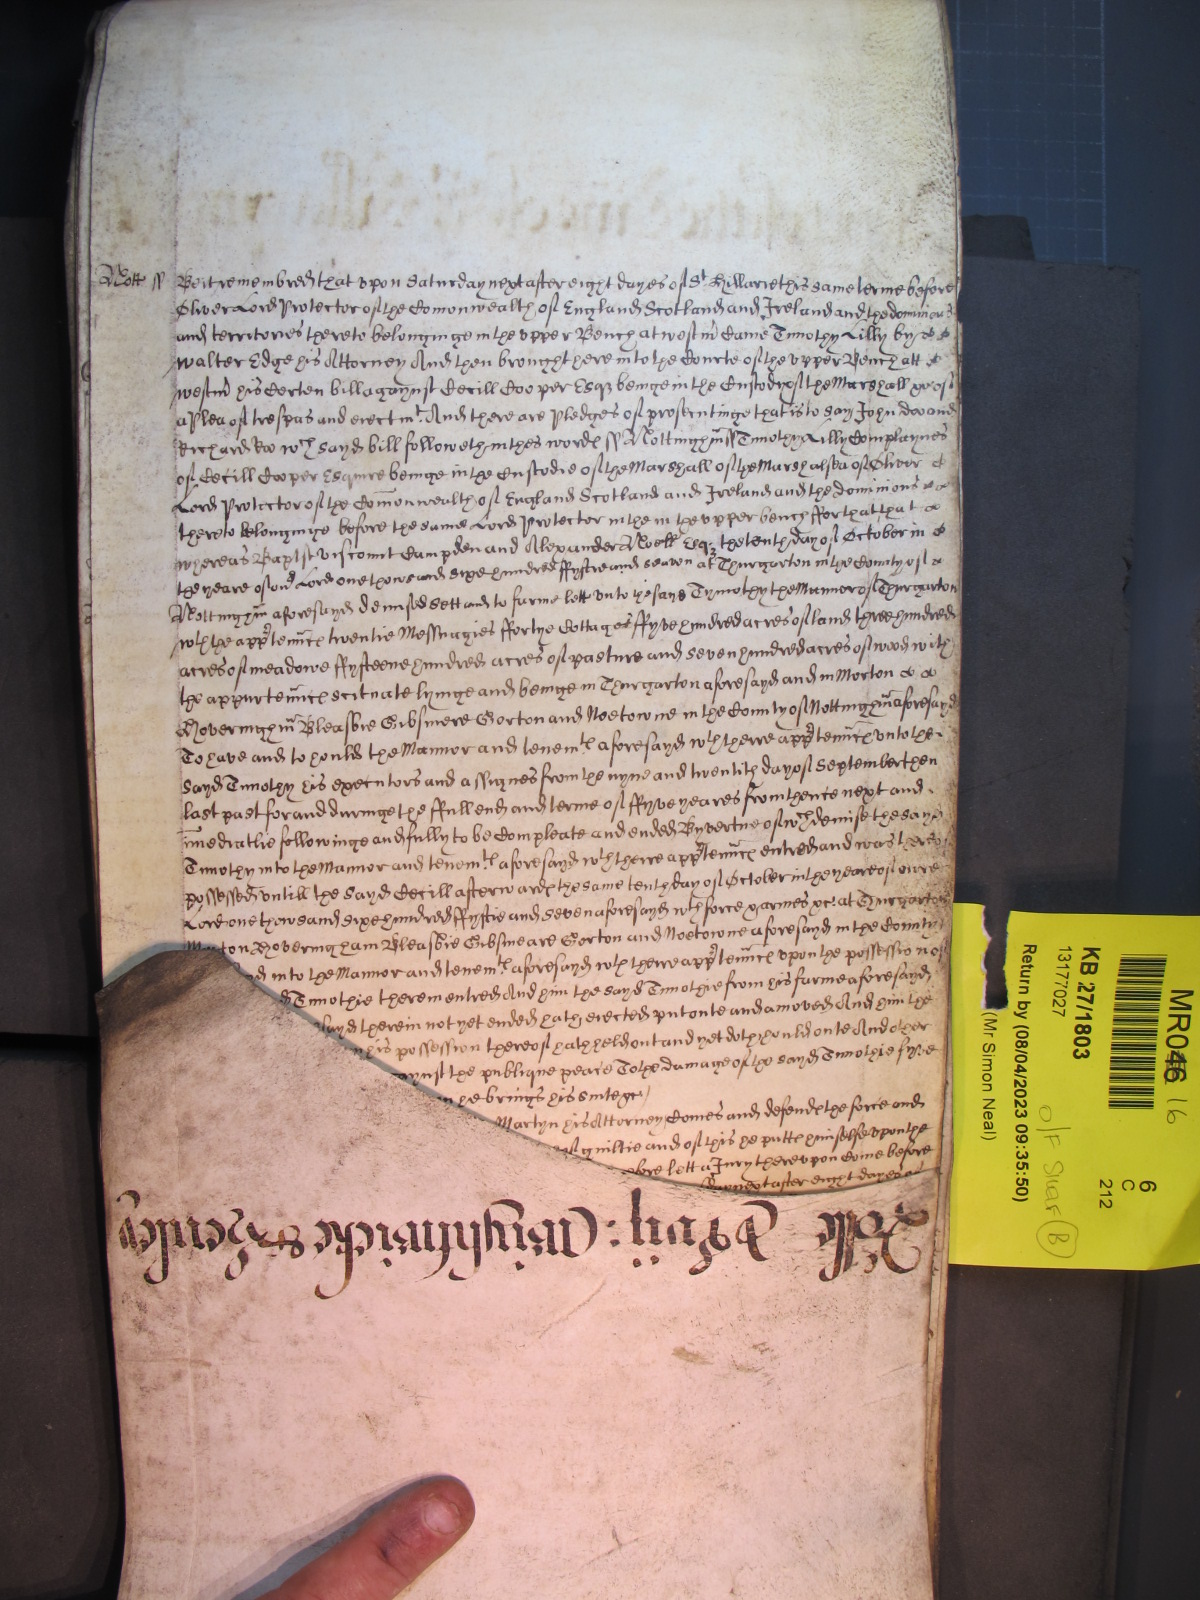 Nott ss Be it remembred that upon Saturday next after eight dayes of St Hillarie this same terme before
Oliver Lord Protector of the Comonwealth of England Scotland and Ireland and the dominions
and territories thereto belonginge in the upper Bench at westm̃ Came Timothy Lilly by
Walter Edge his Attorney And then brought here into the Courte of the upper Bench att
westm̃ his Certen bill agaynst Cecill Cooper Esqr beinge in the Custody of the Marshall &c of
a Plea of trespas and eiectmt. And there are Pledges of prosecutinge that is to say John doo and
Richard Roo wch sayd bill followeth in thes words ss Nottinghm̃ ss Timothy Lilly Complaynes
of Cecill Cooper Esquire beinge in the Custodie of the Marshall of the Marshalsea of Oliver
Lord Protector of the Com̃onwealth of England Scotland and Ireland and the dominions
thereto belonginge before the same Lord Protector in the in the upper bench ffor that that
whereas Baptist viscount Campden and Alexander Noell Esqr the tenth day of October in
the yeare of our Lord one thowsand sixe hundred ffyftie and seaven at Thurgarton in the County of
Nottinghm̃ aforesayd demised sett and to farme lett unto the sayd Tymothy the Mannor of Thurgarton
wth the apptenñces twentie Messuagies ffortye Cottages ffyve hundred acres of land three hundred
acres of meadowe ffyfteene hundred acres of pasture and seven hundred acres of wood with
the appurtenñces scituate lyinge and beinge in Thurgarton aforesayd and in Morton
Hoveringhm̃ Bleasbie Gibsmere Gorton and Noetowne in the County of Nottinghm̃ aforesayd
To have and to hould the Mannor and tenemts aforesayd wth there apptenñces unto the
sayd Timothy his executors and assignes from the nyne and twentith day of September then
last past for and duringe the ffull end and terme of ffyve yeares from thence next and
im̃ediatlie followinge and fully to be Compleate and ended By vertue of wch demise the sayd
Timothy into the Mannor and tenemts aforesayd wth there apptenñces entred and was thereof
possessed untill the sayd Cecill afterwards the same tenth day of October in the yeare of oure
Lord one thowsand sixe hundred ffyftie and seven aforesayd wth force & armes &c. at Thurgarton
Morton Hoveringham Bleasbie Gibsmeare Gorton and Noetowne aforesayd in the County
into the Mannor and tenemts aforesayd wth there apptenñces upon the possession of
Timothie therein entred And him the sayd Timothie from his farme aforesayd
sayd therein not yet ended hath eiected put oute and amoved And him the
his possession thereof hath held out and yet doth hould oute And other
agaynst the publique peace To the damage of the sayd Timothie fyve
he brings his suite &c
Martyn his Attorney Comes and defends the force and
guiltie and of this he putts himselfe upon the
lett a Jury thereupon Come before
next after eight dayes of
Rolle Wightwicke & Henley
MR046 16
KB 27/1803
13177027
Return by (08/04/2023 09:35:50)
(Mr Simon Neal)
6
C
212
O/F Shelf B